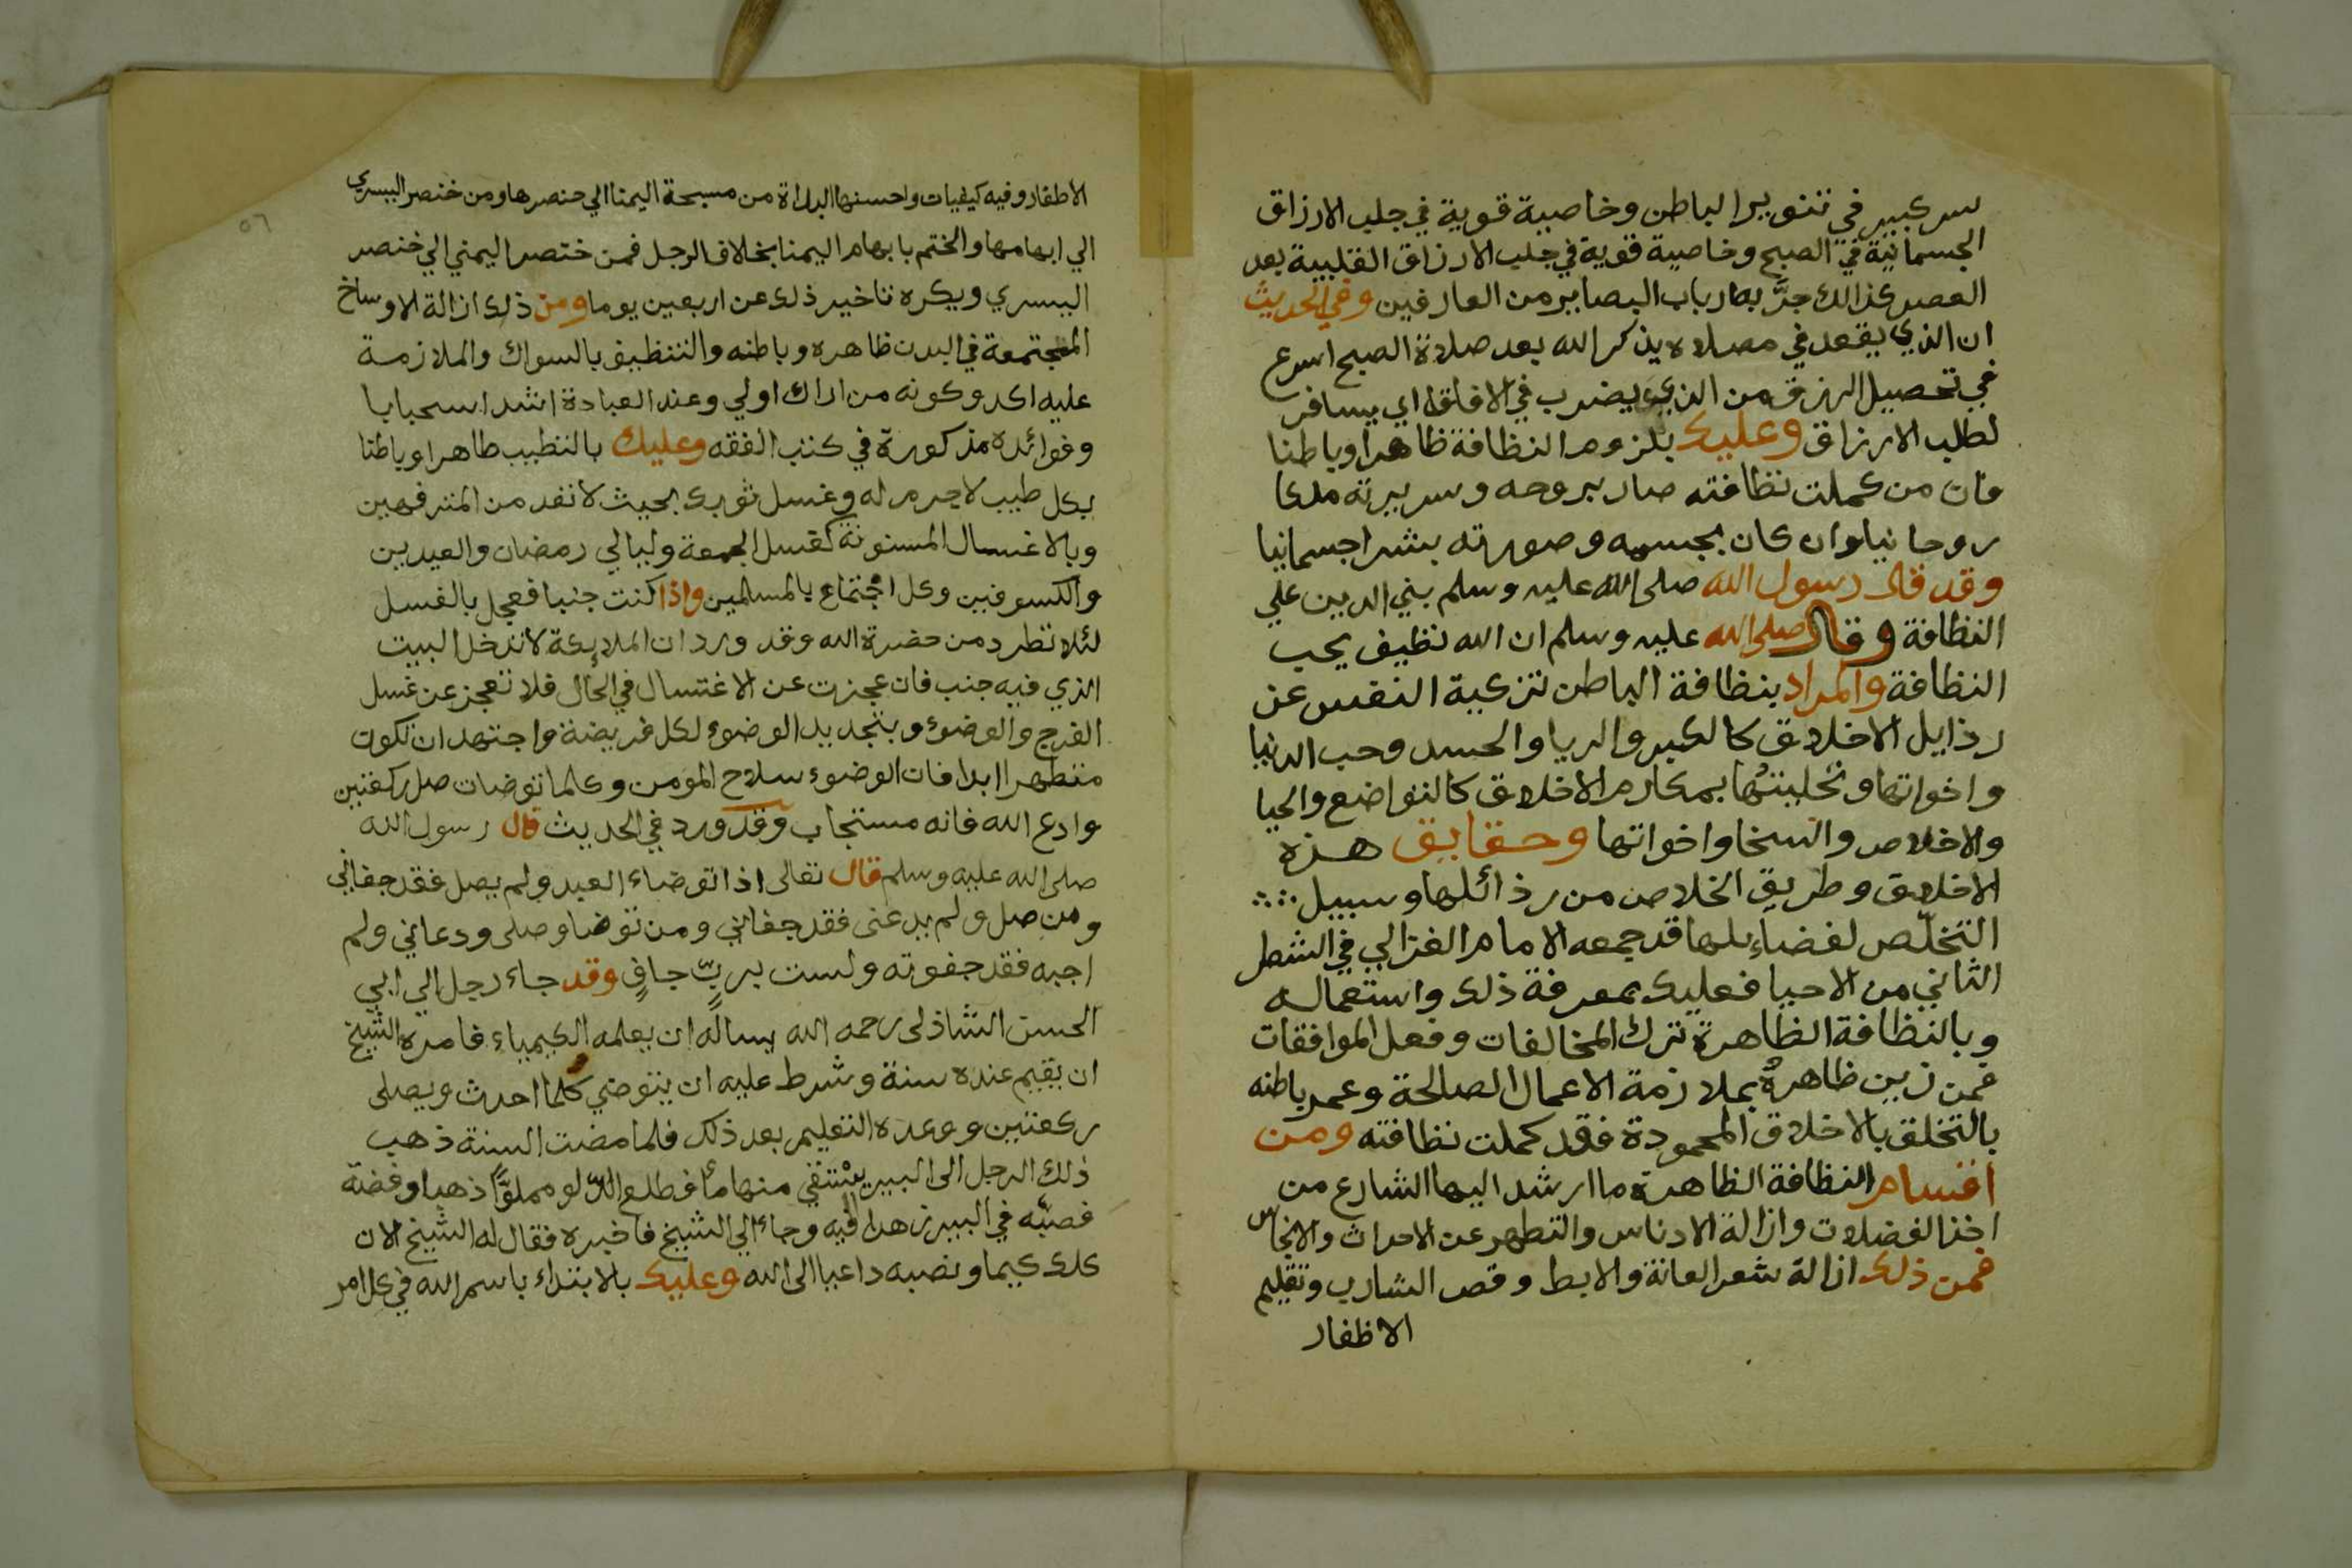 سر كبير في تنوير الباطن وخاصية قوية في جلب الارزاق
الجسمانية في الصبح وخاصية قوية في جلب الارزاق القلبية بعد
العصر كذالك جرَّبه ارباب البصاير من العارفين وفي الحديث
ان الذي يقعد في مصلاه يذكر الله بعد صلاة الصبح اسرع
في تحصيل الرزق من الذي يضرب في الافاق اي يسافر
لطلب الارزاق وعليك بلزوم النظافة ظاهرا وباطنا
فان من كملت نظافته صار بروحه وسريرته ملكا
روحانيا وان كان بجسمه وصورته بشرا جسمانيا
وقد قال رسول الله صلى الله عليه وسلم بني الدين علي
النظافة وقال صلى الله عليه وسلم ان الله نظيف يحب
النظافة والمراد بنظافة الباطن تزكية النفس عن
رذايل الاخلاق كالكبر والريا والحسد وحب الدنيا
واخواتها وتحليتها بمكارم الاخلاق كالتواضع والحيا
والاخلاص والسخا واخواتها وحقايق هذه
الاخلاق وطريق الخلاص من رذائلها وسبيل
التخلّص لفضاءلها قد جمعه الامام الغزالي في الشطر
الثاني من الاحيا فعليك بمعرفة ذلك واستعماله
وبالنظافة الظاهرة ترك المخالفات وفعل الموافقات
فمن زين ظاهره بملازمة الاعمال الصالحة وعمر باطنه
بالتخلق بالاخلاق المحمودة فقد كملت نظافته ومن
اقسام النظافة الظاهرة ما ارشد اليها الشارع من
اخذ الفضلات وازالة الادناس والتطهر عن الاحداث والانجاس
فمن ذلك ازالة شعر العانة والابط وقص الشارب وتقليم
الاظفار
٥٦
الاظفار وفيه كيفيات واحسنها البداة من مسبحة اليمنا الي خنصرها ومن خنصر اليسري
الي ابهامها والختم بابهام اليمنا بخلاف الرجل فمن خنصر اليمني الي خنصر
اليسري ويكره تاخير ذلك عن اربعين يوما ومن ذلك ازالة الاوساخ
المجتمعة في البدن ظاهره وباطنه والتنظيف بالسواك والملازمة
عليه اكد وكونه من اراك اولي وعند العبادة اشد اسحبابا
وفوائده مذكورة في كتب الفقه وعليك بالتطيب ظاهرا وباطنا
بكل طيب لا يحرم له وغسل ثوبك بحيث لا تعد من المترفهين
وبالاغسال المسنونة كغسل الجمعة وليالي رمضان والعيدين
والكسوفين وكل اجتماع بالمسلمين واذا كنت جنبا فعجل بالغسل
لئلا تطرد من حضرة الله وقد ورد ان الملايكة لا تدخل البيت
الذي فيه جنب فان عجزت عن الاغتسال في الحال فلا تعجز عن غسل
الفرج والوضوء وبتجديد الوضوء لكل فريضة واجتهد ان تكون
متطهرا ابدا فان الوضوء سلاح المومن وكلما توضات صل ركعتين
وادع الله فانه مستجاب وقد ورد في الحديث قال رسول الله
صلى الله عليه وسلم قال تعالى اذا توضاء العبد ولم يصل فقد جفاني
ومن صل ولم يدعنى فقد جفاني ومن توضا وصلى ودعاني ولم
اجبه فقد جفوته ولست بربّ جافٍ وقد جاء رجل الي ابي
الحسن الشاذلى رحمه الله يساله ان يعلمه الكيمياء فامره الشيخ
ان يقيم عنده سنة وشرط عليه ان يتوضي كلما احدث ويصلى
ركعتين ووعده التعليم بعد ذلك فلما مضت السنة ذهب
ذلك الرجل الى البير يستقي منها ماء فطلع الدلو مملوًّا ذهبا وفضة
فصبّه في البير زهدا فيه وجاء الي الشيخ فاخبره فقال له الشيخ الان
كلك كيميا ونصبه داعيا الى الله وعليك بالابتداء باسم الله في كل امر